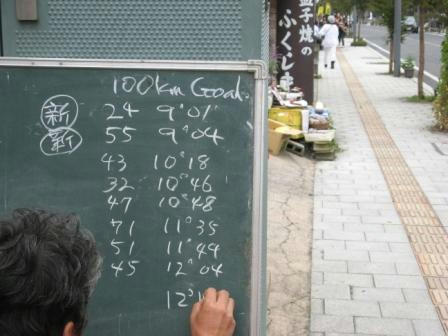 100km Goal
新 24 9°01'
新 55 9°04
43 10°18
32 10°46
47 10°48
71 11°35
51 11°44
45 12°04
12°1
益子焼の
ふくしま